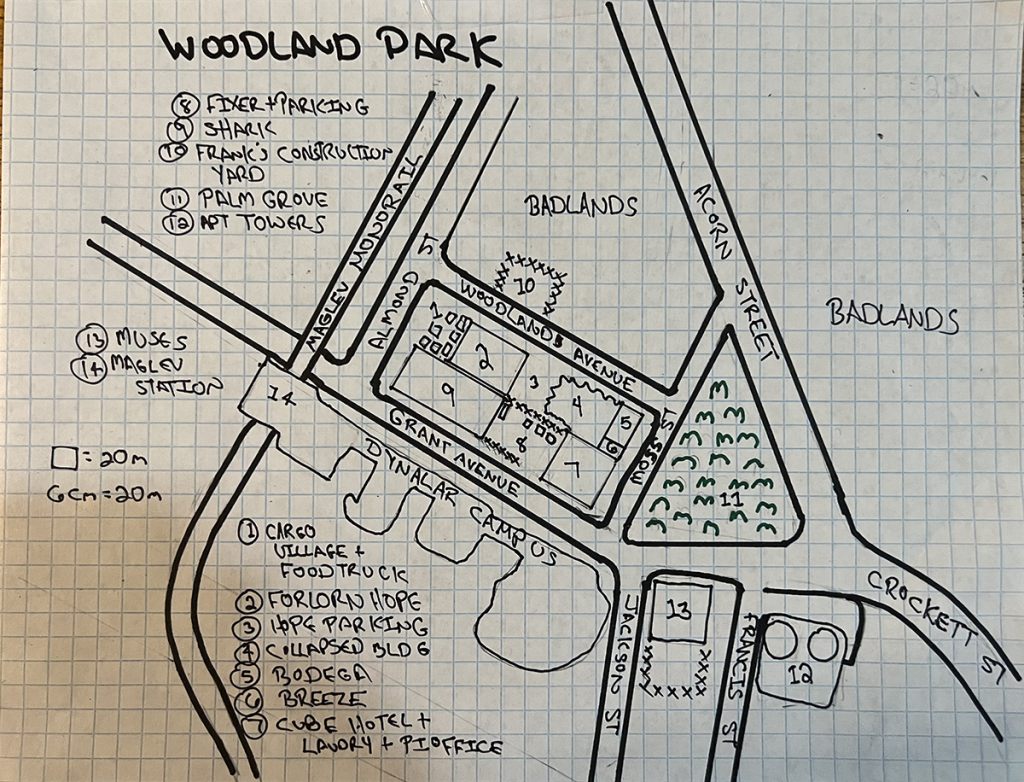 WOODLAND PARK
⑧ FIXER + PARKING
⑨ SHARK
⑩ FRANK'S CONSTRUCTION
YARD
⑪ PALM GROVE
⑫ APT TOWERS
⑬ MUSES
⑭ MAGLEV
STATION
□ = 20m
6cm = 20m
① CARGO
VILLAGE +
FOODTRUCK
② FORLORN HOPE
③ HOPE PARKING
④ COLLAPSED BLDG
⑤ BODEGA
⑥ BREEZE
⑦ CUBE HOTEL +
LAUDRY + PI OFFICE
MAGLEV MONORAIL
ALMOND ST
BADLANDS
10
WOODLANDS AVENUE
ACORN STREET
BADLANDS
1
2
3
4
5
6
7
8
9
14
GRANT AVENUE
DYNALAR CAMPUS
11
JACKSON ST
13
FRANCIS ST
12
CROCKETT ST